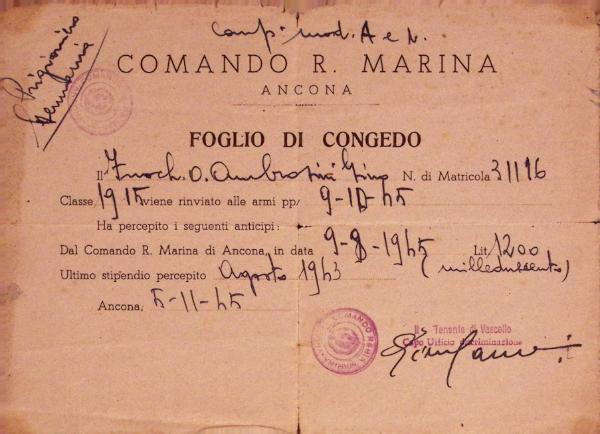 Comp. mod. A e N.
Prigioniero
Germania
COMANDO R. MARINA
ANCONA
FOGLIO DI CONGEDO
Il Fuoch. O. Ambrosini Gino N. di Matricola 31196
Classe, 1915 viene rinviato alle armi pp/ 9-10-45
Ha percepito i seguenti anticipi:
Dal Comando R. Marina di Ancona, in data 9-8-1945 Lit. 1200
Ultimo stipendio percepito Agosto 1943 (milleduecento)
Ancona, 5-11-45
Il Tenente di Vascello
Capo Ufficio discriminazione